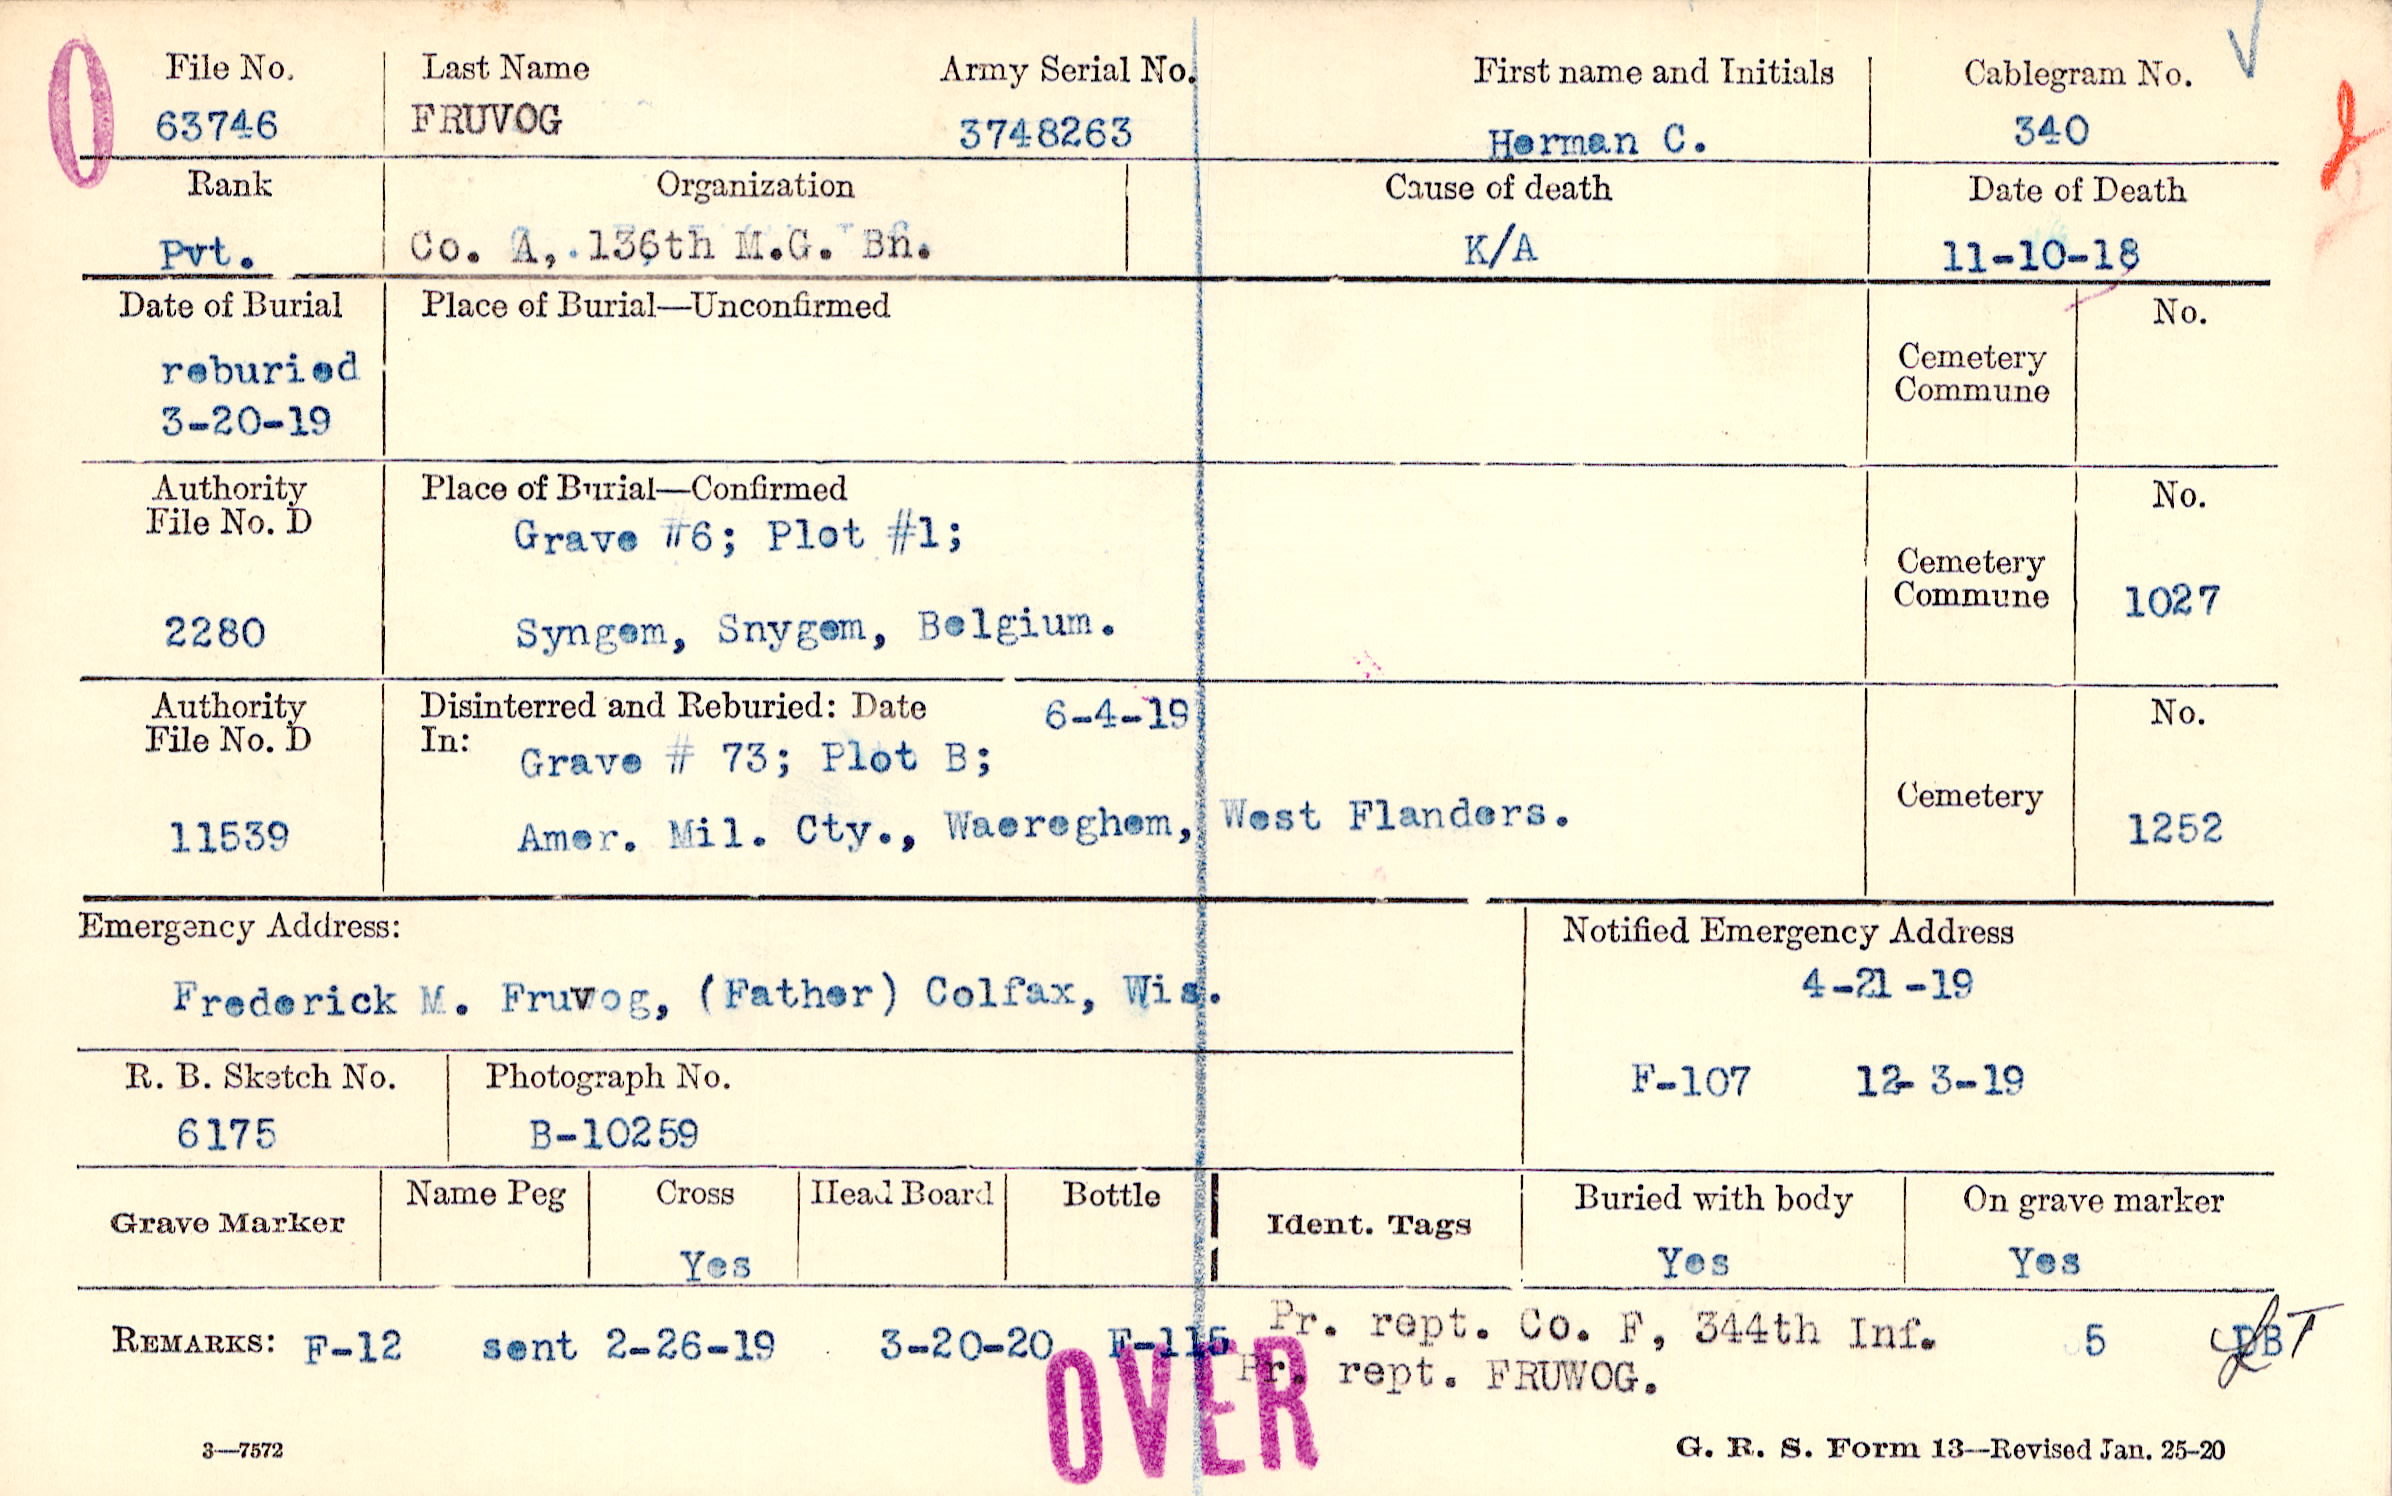 File No. Last Name Army Serial No. First name and Initials Cablegram No.
63746 FRUVOG 3748263 Herman C. 340
Rank Organization Cause of death Date of Death
Pvt. Co. A, 136th M.G. Bn. K/A 11-10-18
Date of Burial Place of Burial—Unconfirmed No.
reburied Cemetery
Commune
3-20-19
Authority Place of Burial—Confirmed No.
File No. D Grave #6; Plot #1;
Cemetery
Commune 1027
2280 Syngem, Snygem, Belgium.
Authority Disinterred and Reburied: Date 6-4-19 No.
File No. D In: Grave # 73; Plot B;
Cemetery
11539 Amer. Mil. Cty., Waereghem, West Flanders. 1252
Emergency Address: Notified Emergency Address
Frederick M. Fruvog, (Father) Colfax, Wis. 4-21-19
R. B. Sketch No. Photograph No. F-107 12-3-19
6175 B-10259
Grave Marker Name Peg Cross Head Board Bottle Ident. Tags Buried with body On grave marker
Yes Yes Yes
REMARKS: F-12 sent 2-26-19 3-20-20 F-115 Pr. rept. Co. F, 344th Inf. 5
Pr. rept. FRUWOG.
OVER
3—7572 G. R. S. Form 13—Revised Jan. 25-20